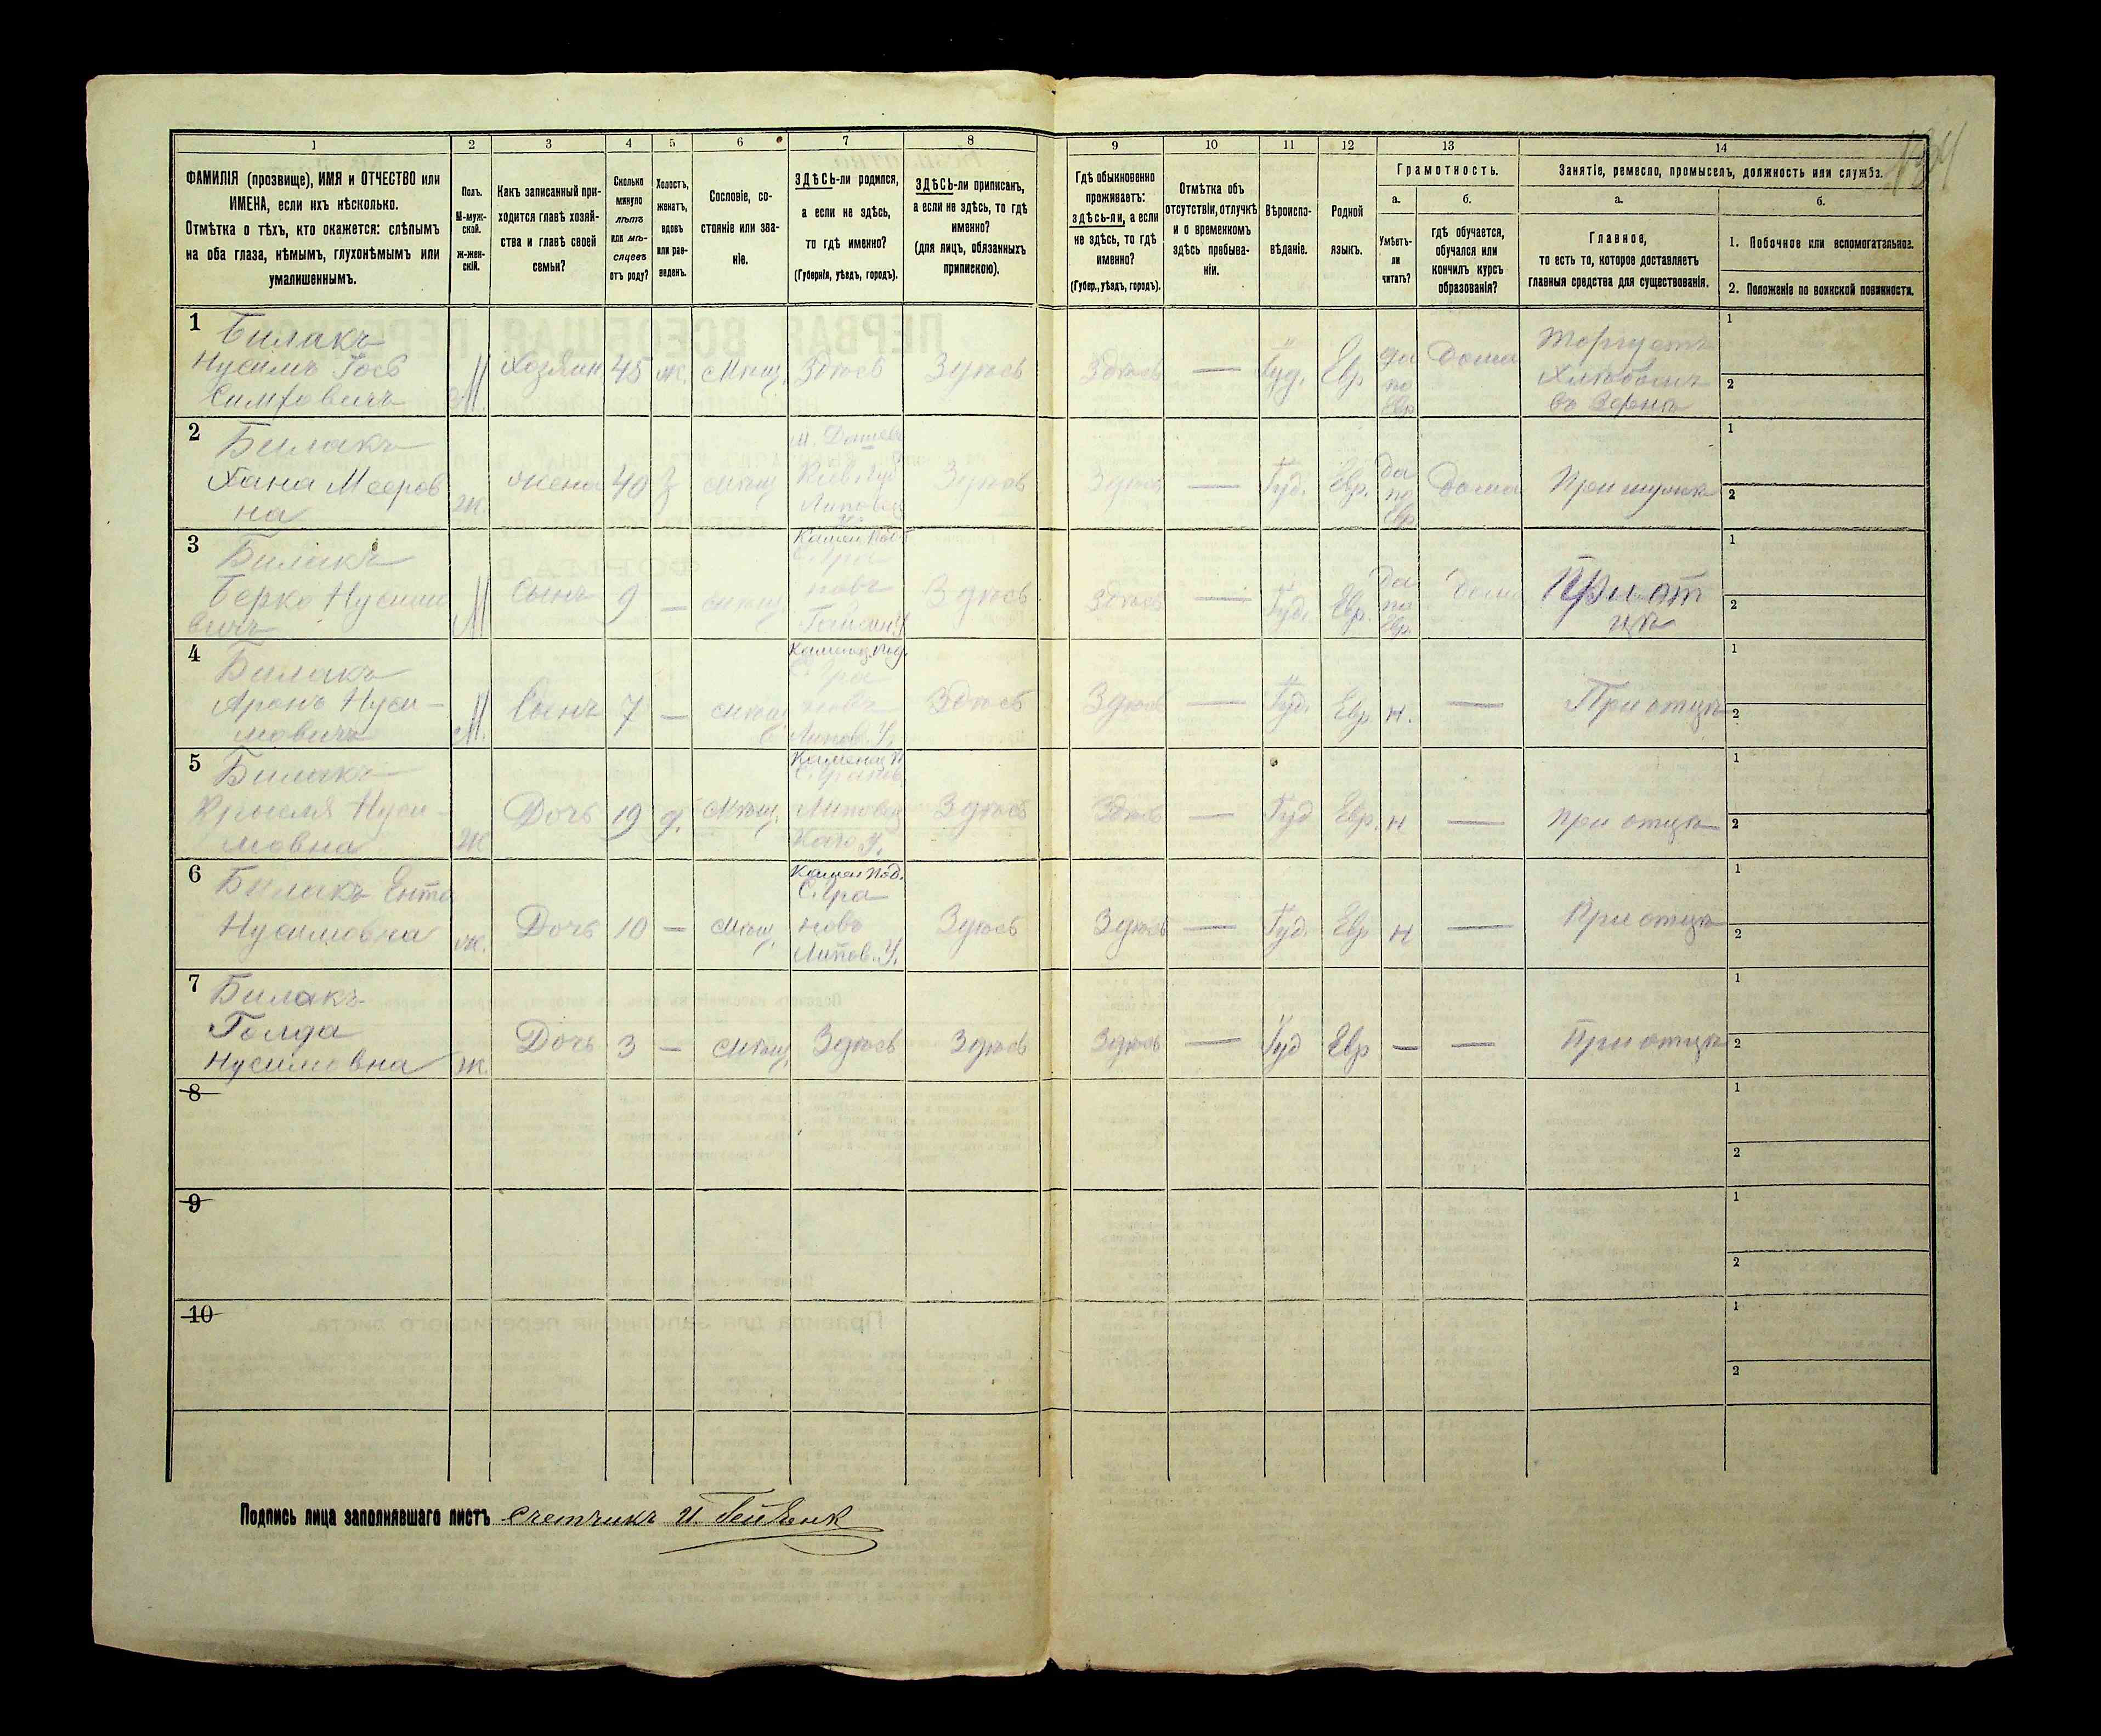 1 2 3 4 5 6 7 8 9 10 11 12 13 14
ФАМИЛІЯ (прозвище), ИМЯ и ОТЧЕСТВО или
ИМЕНА, если ихъ нѣсколько.
Отмѣтка о тѣхъ, кто окажется: слѣпымъ
на оба глаза, нѣмымъ, глухонѣмымъ или
умалишеннымъ.
Полъ.
М-муж-
ской.
ж-жен-
скій.
Какъ записанный при-
ходится главѣ хозяй-
ства и главѣ своей
семьи?
Сколько
минуло
лѣтъ
или мѣ-
сяцевъ
отъ роду?
Холостъ,
женатъ,
вдовъ
или раз-
веденъ.
Сословіе, со-
стояніе или зва-
ніе.
ЗДѢСЬ-ли родился,
а если не здѣсь,
то гдѣ именно?
(Губернія, уѣздъ, городъ).
ЗДѢСЬ-ли приписанъ,
а если не здѣсь, то гдѣ
именно?
(для лицъ, обязанныхъ
припискою).
Гдѣ обыкновенно
проживаетъ:
здѣсь-ли, а если
не здѣсь, то гдѣ
именно?
(Губер., уѣздъ, городъ).
Отмѣтка объ
отсутствіи, отлучкѣ
и о временномъ
здѣсь пребыва-
ніи.
Вѣроиспо-
вѣданіе.
Родной
языкъ.
Грамотность.
а.
Умѣетъ-
ли
читать?
б.
гдѣ обучается,
обучался или
кончилъ курсъ
образованія?
Занятіе, ремесло, промыселъ, должность или служба.
а.
Главное,
то есть то, которое доставляетъ
главныя средства для существованія.
б.
1. Побочное или вспомогательное.
2. Положеніе по воинской повинности.
1
Билакъ
Нусимъ
М.
Хозяин
45
ж.
Мѣщ.
Здѣсь
Здѣсь
Здѣсь
—
Іуд.
Евр
да
по
Евр
Дома
Торгуетъ
Хлѣбомъ
въ Зернѣ
1
2
2
Билакъ
Хана Мееров
на
ж.
жена
40
З
Мѣщ
Здѣсь
Здѣсь
—
Іуд.
Евр.
да
по
Евр
Дома
При мужѣ
1
2
3
Билакъ
Берко Нусимо
вичъ
М
Сынъ
9
—
Мѣщ
Камен. Под.
Гайсин. У.
Здѣсь
Здѣсь
—
Іуд.
Евр.
да
по
Евр.
дома
При от
цѣ
1
2
4
Билакъ
Аронъ Нуси-
мовичъ
М.
Сынъ
7
—
Мѣщ
Каменец. Под.
Липов. У.
Здѣсь
Здѣсь
—
Іуд.
Евр.
н.
—
При отцѣ
1
2
5
Билакъ
Нуси-
мовна
Ж
Дочь
19
д.
Мѣщ.
Каменец. П.
Липовец
каго У.
Здѣсь
Здѣсь
—
Іуд
Евр.
н
—
При отцѣ
1
2
6
Билакъ Ента
Нусимовна
ж.
Дочь
10
—
Мѣщ.
Камен. Под.
Липов. У.
Здѣсь
Здѣсь
—
Іуд.
Евр
н
—
При отцѣ
1
2
7
Билакъ
Голда
Нусимовна
ж.
Дочь
3
—
Мѣщ.
Здѣсь
Здѣсь
Здѣсь
—
Іуд
Евр
—
—
При отцѣ
1
2
8
1
2
9
1
2
10
1
2
Подпись лица заполнявшаго листъ Счетчикъ И.